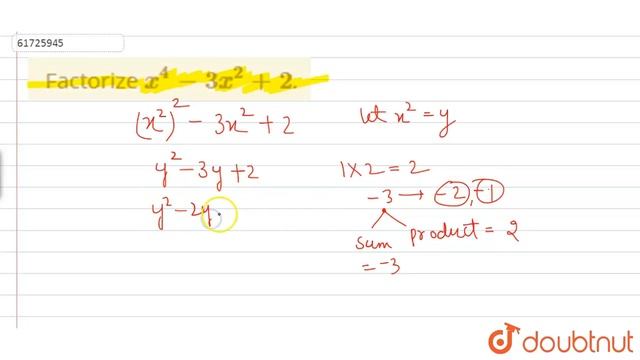 61725945
Factorize x⁴ − 3x² + 2.
(x²)² − 3x² + 2
let x² = y
y² − 3y + 2
1 × 2 = 2
−3 → −2, −1
y² − 2y
sum product = 2
= −3
doubtnut